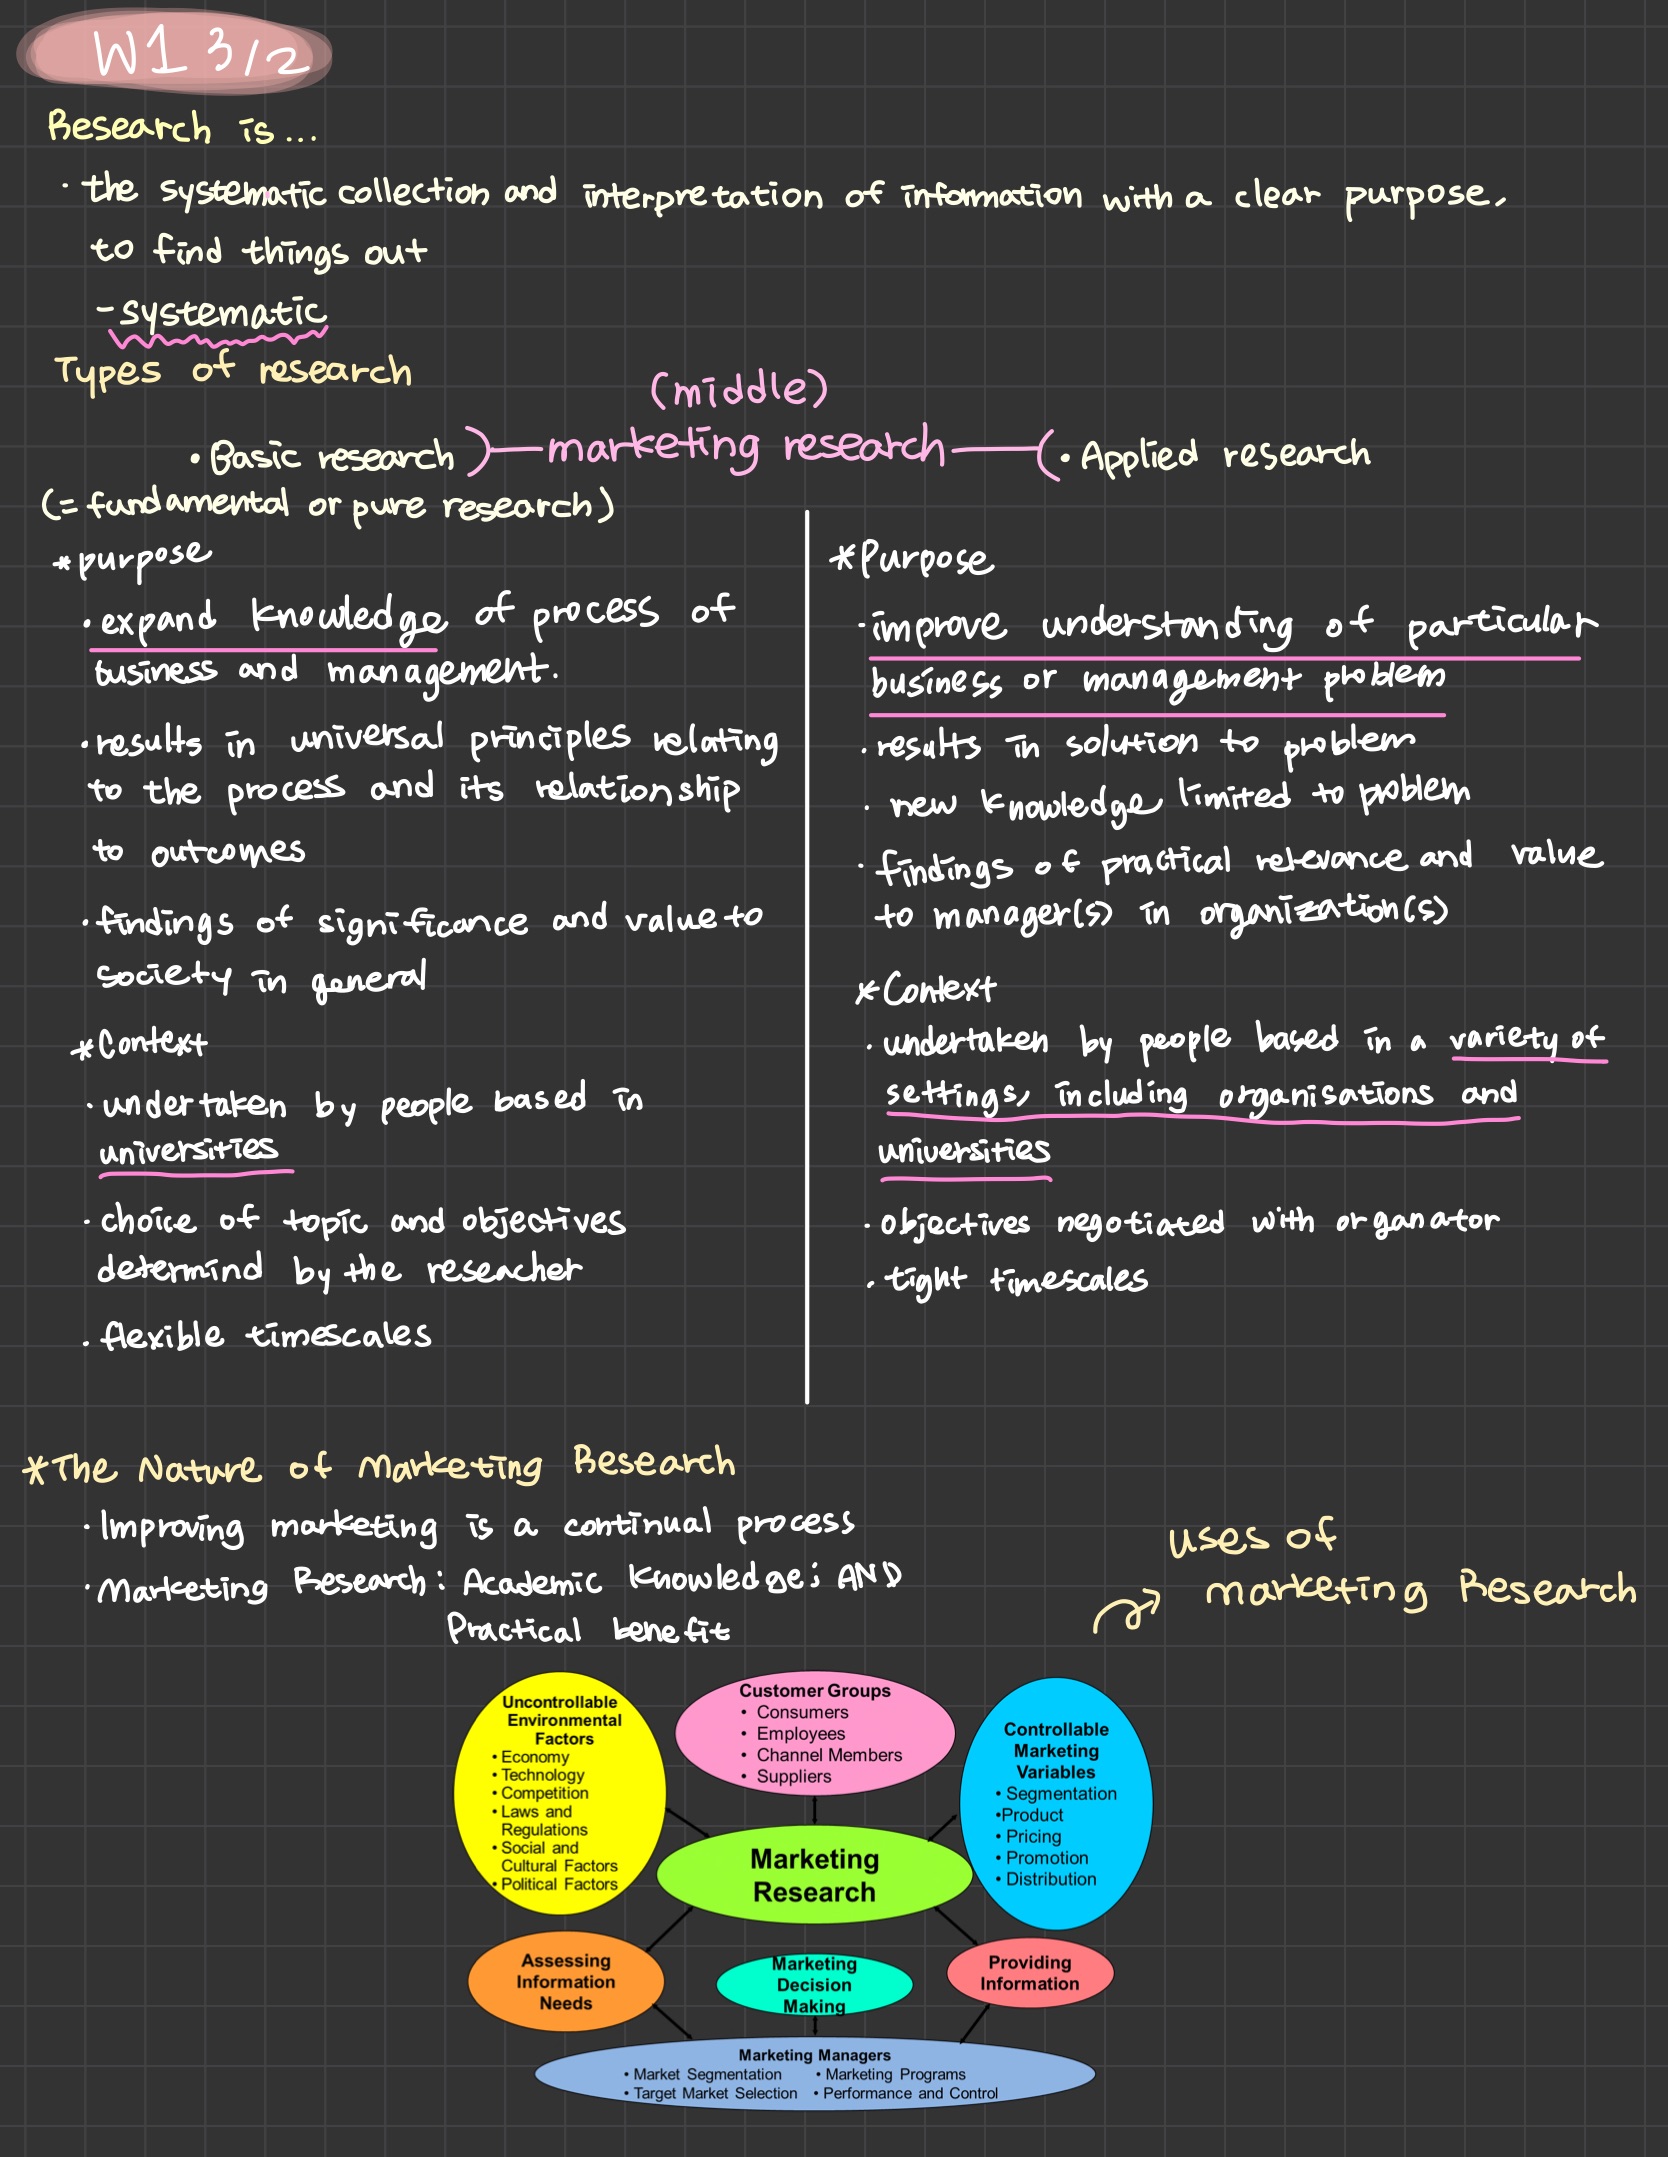 W1 3/2
Research is...
· the systematic collection and interpretation of information with a clear purpose,
to find things out
- systematic
Types of research
(middle)
• Basic research )— marketing research —( • Applied research
(= fundamental or pure research)
*purpose
· expand knowledge of process of
business and management.
· results in universal principles relating
to the process and its relationship
to outcomes
· findings of significance and value to
society in general
*Context
· undertaken by people based in
universities
· choice of topic and objectives
determind by the reseacher
· flexible timescales
*Purpose
· improve understanding of particular
business or management problem
· results in solution to problem
· new knowledge limited to problem
· findings of practical relevance and value
to manager(s) in organization(s)
*Context
· undertaken by people based in a variety of
settings, including organisations and
universities
· objectives negotiated with organator
· tight timescales
*The Nature of Marketing Research
· Improving marketing is a continual process
· Marketing Research: Academic knowledge; AND
Practical benefit
uses of
marketing Research
Uncontrollable
Environmental
Factors
• Economy
• Technology
• Competition
• Laws and
Regulations
• Social and
Cultural Factors
• Political Factors
Customer Groups
• Consumers
• Employees
• Channel Members
• Suppliers
Controllable
Marketing
Variables
• Segmentation
•Product
• Pricing
• Promotion
• Distribution
Marketing
Research
Assessing
Information
Needs
Marketing
Decision
Making
Providing
Information
Marketing Managers
• Market Segmentation • Marketing Programs
• Target Market Selection • Performance and Control